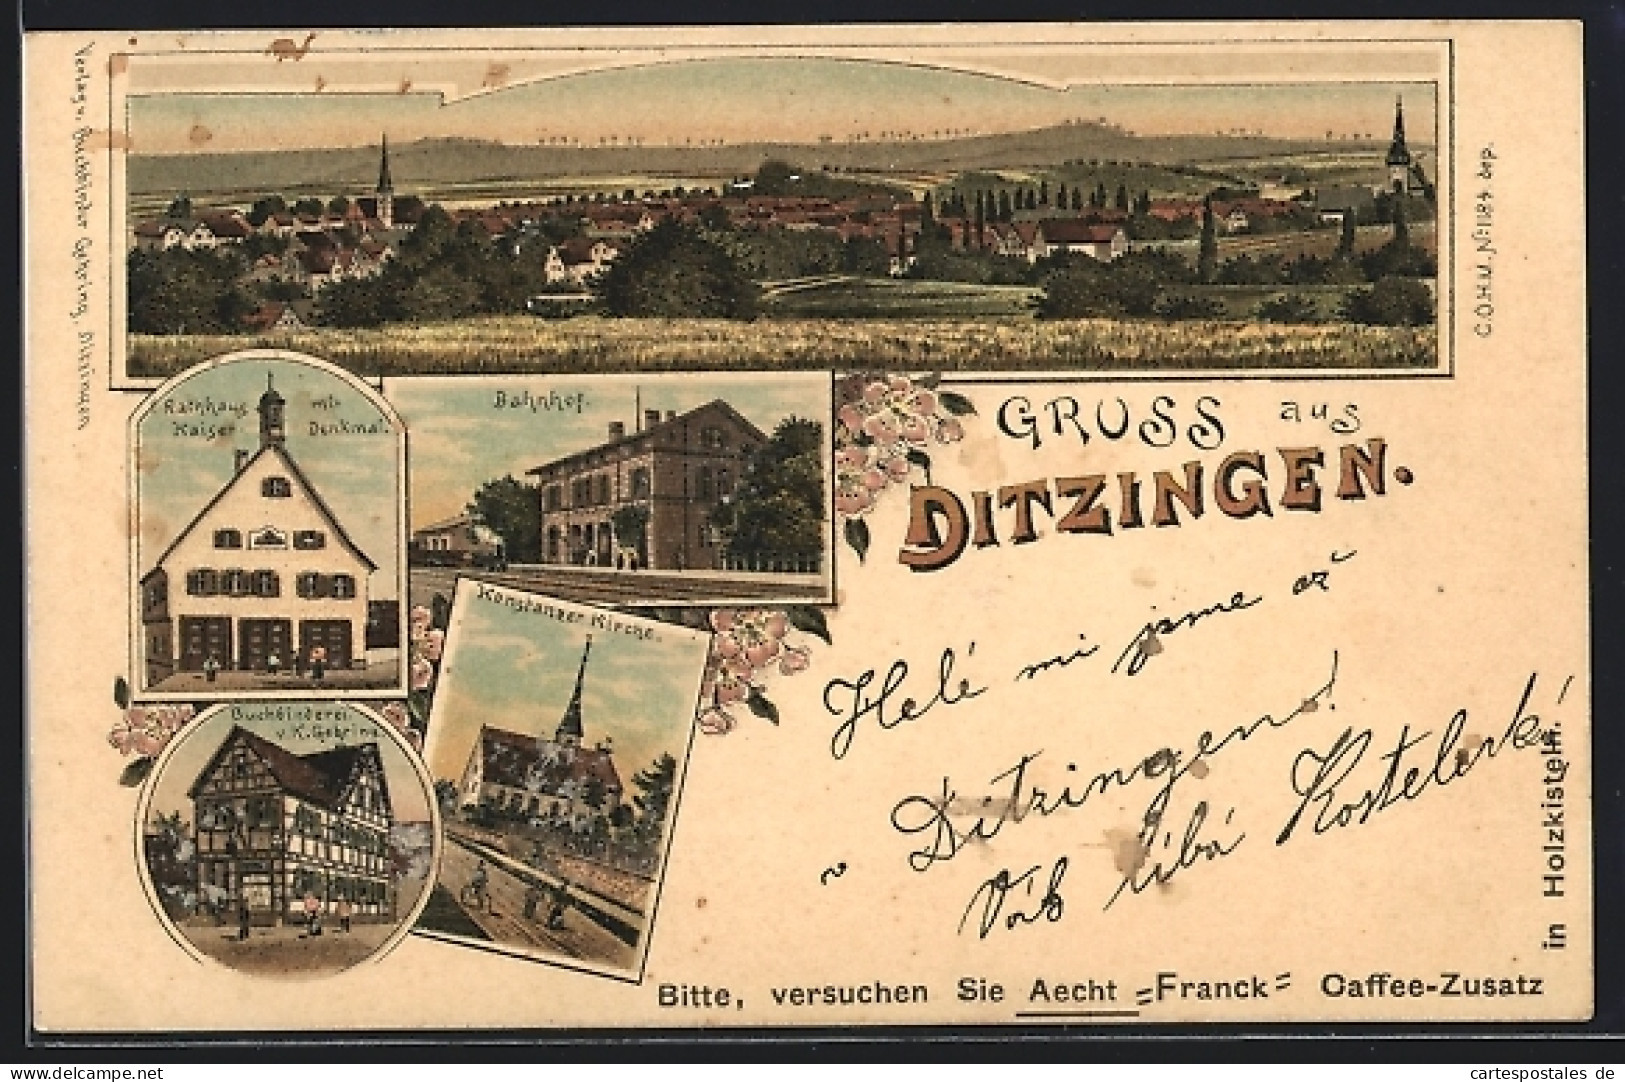 Verlag v. Buchbinder Gehring, Ditzingen
C.O.H.W. No. 1184 dep.
Rathhaus mit
Kaiser Denkmal.
Bahnhof.
GRUSS aus
DITZINGEN.
Konstanzer Kirche.
Buchbinderei
v. K. Gehring
Helé mi jsme až
v Ditzingen!
Vás líbá
Bitte, versuchen Sie Aecht =Franck= Caffee-Zusatz
in Holzkisteln.
© cartespostales de